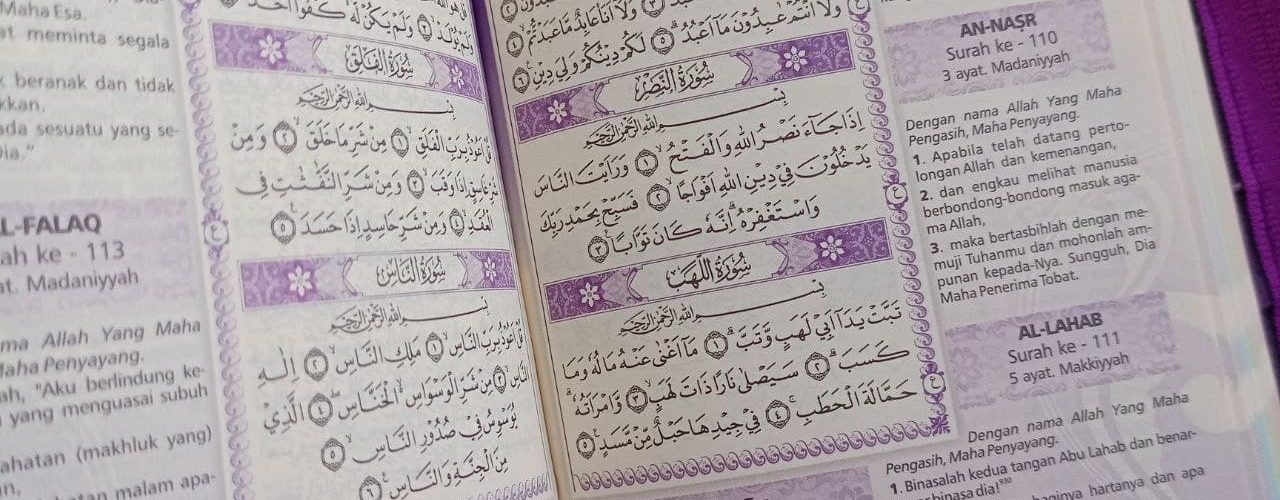 Maha Esa.
meminta segala
beranak dan tidak
kkan.
ada sesuatu yang se-
Dia."
L-FALAQ
ah ke - 113
at. Madaniyyah
ma Allah Yang Maha
Maha Penyayang.
ah, "Aku berlindung ke-
yang menguasai subuh
ahatan (makhluk yang)
malam apa-
وَلَمْ يَكُنْ لَّهٗ كُفُوًا اَحَدٌ
سُوْرَةُ الْفَلَقِ
بِسْمِ اللّٰهِ الرَّحْمٰنِ الرَّحِيْمِ
قُلْ اَعُوْذُ بِرَبِّ الْفَلَقِۙ ١ مِنْ شَرِّ مَا خَلَقَۙ ٢ وَمِنْ
شَرِّ غَاسِقٍ اِذَا وَقَبَۙ ٣ وَمِنْ شَرِّ النَّفّٰثٰتِ فِى
الْعُقَدِۙ ٤ وَمِنْ شَرِّ حَاسِدٍ اِذَا حَسَدَ ࣖ ٥
سُوْرَةُ النَّاسِ
بِسْمِ اللّٰهِ الرَّحْمٰنِ الرَّحِيْمِ
قُلْ اَعُوْذُ بِرَبِّ النَّاسِۙ ١ مَلِكِ النَّاسِۙ ٢ اِلٰهِ
النَّاسِۙ ٣ مِنْ شَرِّ الْوَسْوَاسِ ەۙ الْخَنَّاسِۖ ٤ الَّذِيْ
يُوَسْوِسُ فِيْ صُدُوْرِ النَّاسِۙ ٥
مِنَ الْجِنَّةِ وَالنَّاسِ ࣖ ٦
وَلَآ اَنْتُمْ عٰبِدُوْنَ مَآ اَعْبُدُۚ ٣ وَلَآ اَنَا۠ عَابِدٌ مَّا عَبَدْتُّمْۙ ٤
وَلَآ اَنْتُمْ عٰبِدُوْنَ مَآ اَعْبُدُۗ ٥ لَكُمْ دِيْنُكُمْ وَلِيَ دِيْنِ ࣖ ٦
سُوْرَةُ النَّصْرِ
بِسْمِ اللّٰهِ الرَّحْمٰنِ الرَّحِيْمِ
اِذَا جَاۤءَ نَصْرُ اللّٰهِ وَالْفَتْحُۙ ١ وَرَاَيْتَ النَّاسَ
يَدْخُلُوْنَ فِيْ دِيْنِ اللّٰهِ اَفْوَاجًاۙ ٢ فَسَبِّحْ بِحَمْدِ رَبِّكَ
وَاسْتَغْفِرْهُۗ اِنَّهٗ كَانَ تَوَّابًا ࣖ ٣
سُوْرَةُ اللَّهَبِ
بِسْمِ اللّٰهِ الرَّحْمٰنِ الرَّحِيْمِ
تَبَّتْ يَدَآ اَبِيْ لَهَبٍ وَّتَبَّۗ ١ مَآ اَغْنٰى عَنْهُ مَالُهٗ وَمَا
كَسَبَۗ ٢ سَيَصْلٰى نَارًا ذَاتَ لَهَبٍۙ ٣ وَّامْرَاَتُهٗۗ
حَمَّالَةَ الْحَطَبِۚ ٤ فِيْ جِيْدِهَا حَبْلٌ مِّنْ مَّسَدٍ ࣖ ٥
AN-NAṢR
Surah ke - 110
3 ayat. Madaniyyah
Dengan nama Allah Yang Maha
Pengasih, Maha Penyayang.
1. Apabila telah datang perto-
longan Allah dan kemenangan,
2. dan engkau melihat manusia
berbondong-bondong masuk aga-
ma Allah,
3. maka bertasbihlah dengan me-
muji Tuhanmu dan mohonlah am-
punan kepada-Nya. Sungguh, Dia
Maha Penerima Tobat.
AL-LAHAB
Surah ke - 111
5 ayat. Makkiyyah
Dengan nama Allah Yang Maha
Pengasih, Maha Penyayang.
1. Binasalah kedua tangan Abu Lahab dan benar-
binasa dia!
hartanya dan apa